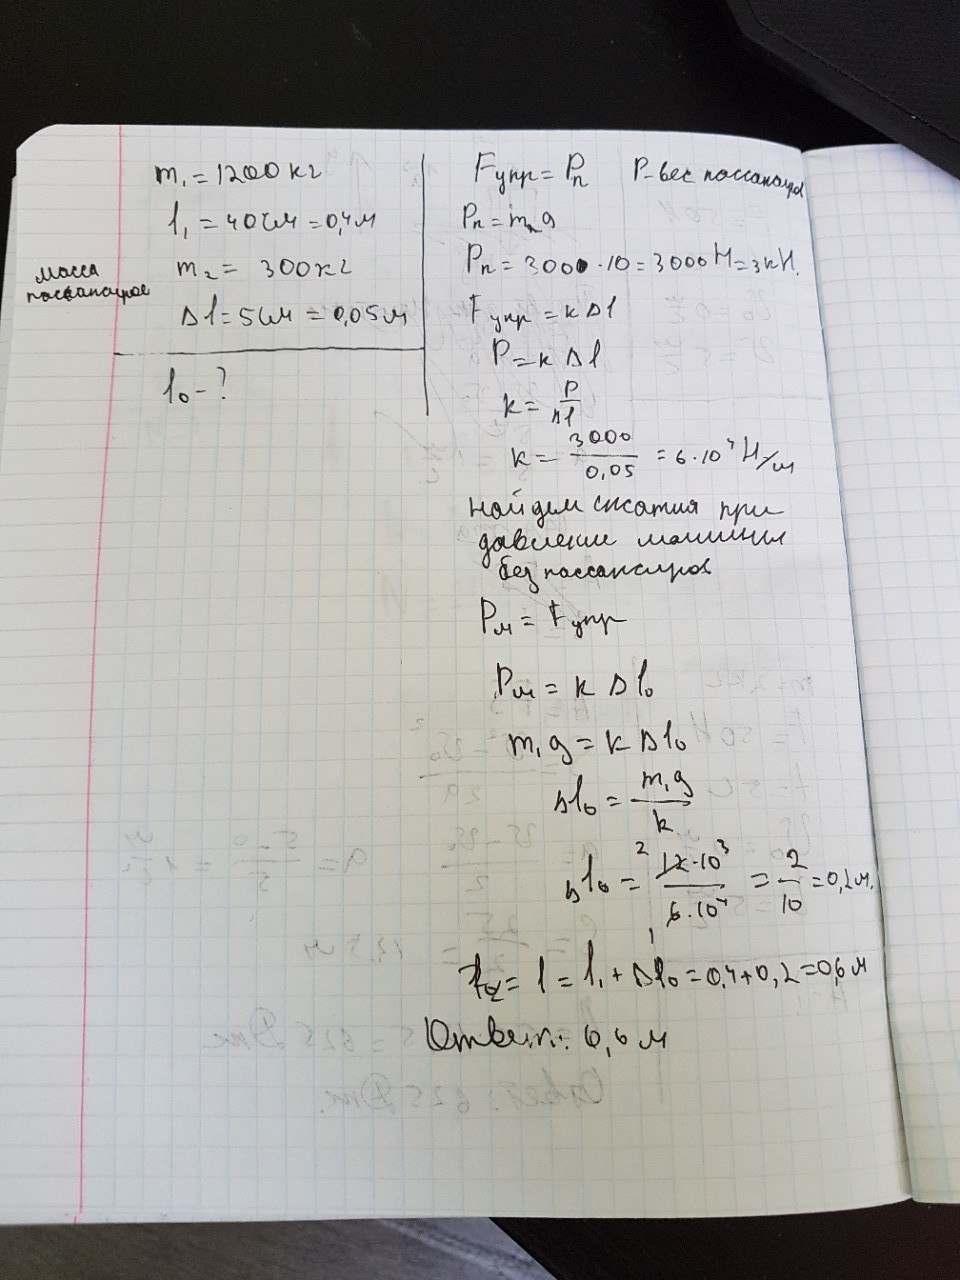 m₁ = 1200 кг
l₁ = 40 см = 0,4 м
масса
пассажиров
m₂ = 300 кг
Δl = 5 см = 0,05 м
l₀ - ?
Fупр = Pп P-вес пассажиров
Pп = m₂g
Pп = 3000 · 10 = 3000 Н = 3кН.
Fупр = kΔl
P = k Δl
k = P/Δl
k = 3000/0,05 = 6·10⁴ Н/м
найдем сжатия при
давление машины
без пассажиров
Pм = Fупр
Pм = k Δl₀
m₁g = k Δl₀
Δl₀ = m₁g/k
Δl₀ = 12·10³/6·10⁴ = 2/10 = 0,2 м.
l = l₁ + Δl₀ = 0,4 + 0,2 = 0,6 м
Ответ: 0,6 м